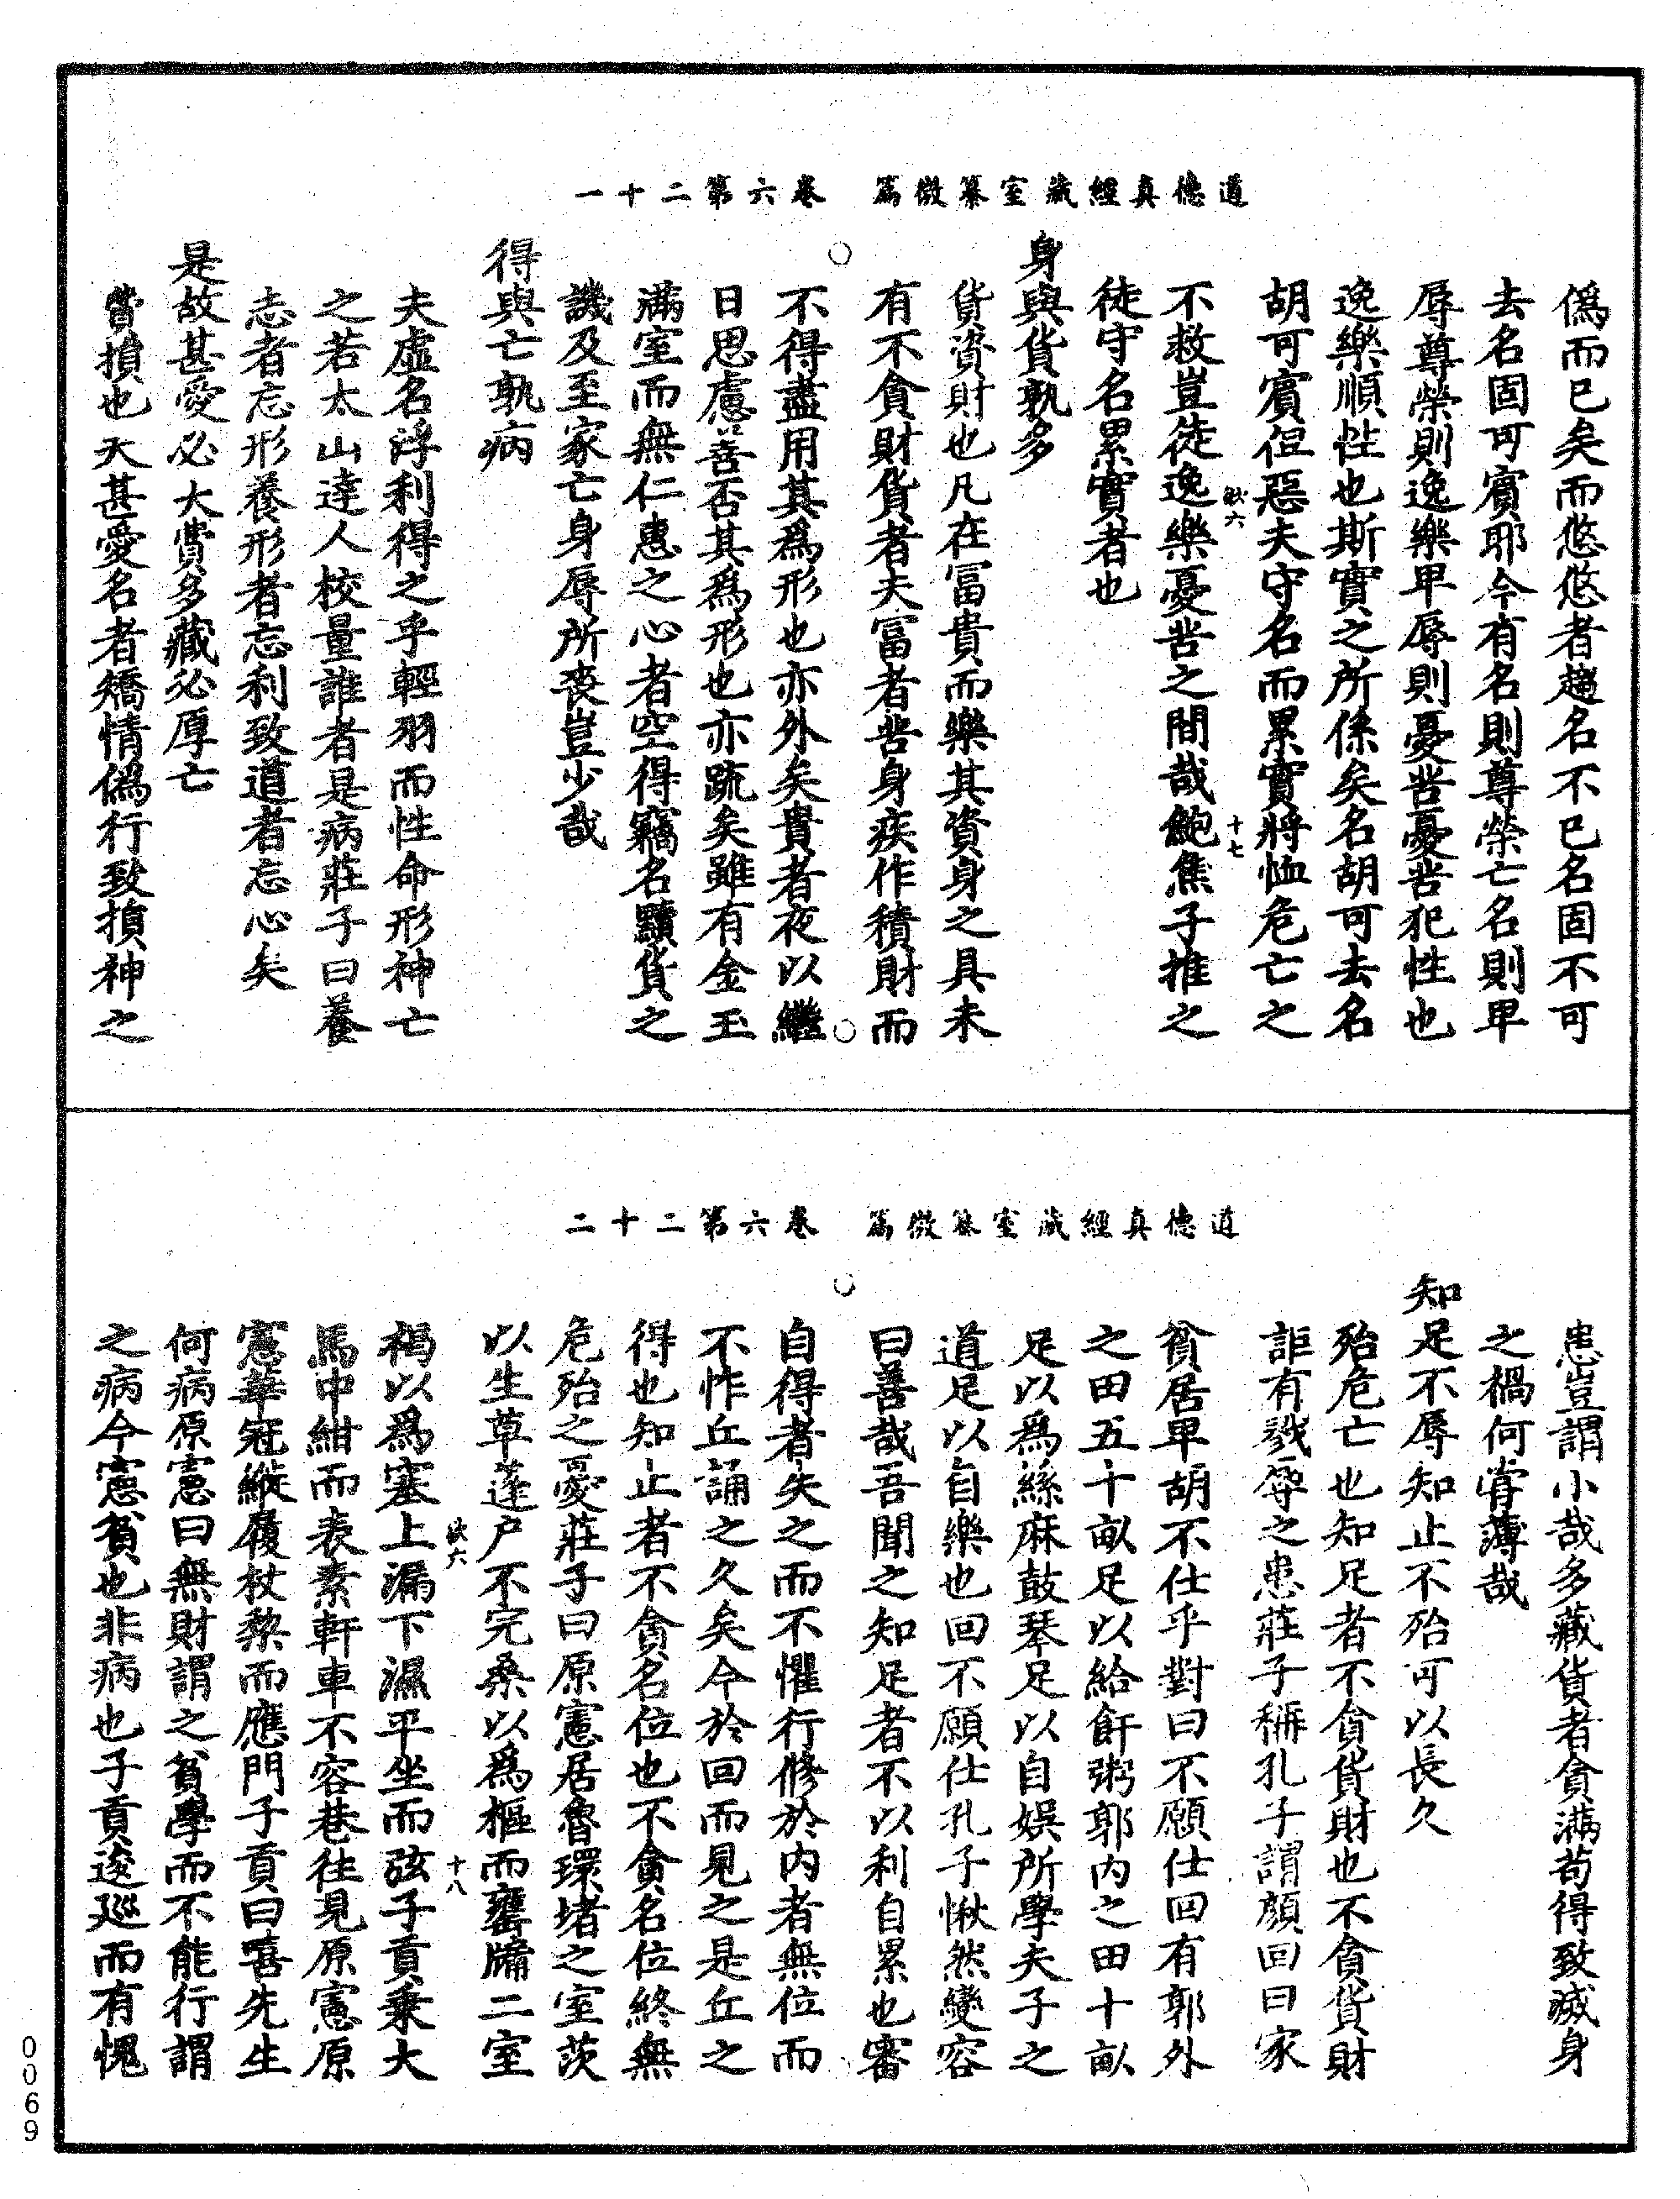 道德真經藏室纂微篇　卷六第二十一
偽而已矣而悠悠者趨名不已名固不可
去名固可賓耶今有名則尊榮亡名則卑
辱尊榮則逸樂卑辱則憂苦憂苦犯性也
逸樂順性也斯實之所係矣名胡可去名
胡可賓但惡夫守名而累實將恤危亡之
欲六　十七
不救豈徒逸樂憂苦之間哉鮑焦子推之
徒守名累實者也
身與貨孰多
貨資財也凡在冨貴而樂其資身之具未
有不貪財貨者夫冨者苦身疾作積財而
不得盡用其爲形也亦外矣貴者夜以繼
日思慮善否其爲形也亦䟽矣雖有金玉
滿室而無仁惠之心者空得竊名黷貨之
譏及至家亡身辱所喪豈少哉
得與亡孰病
夫虛名浮利得之乎輕羽而性命形神亡
之若太山達人校量誰者是病莊子曰養
志者忘形養形者忘利致道者忘心矣
是故甚愛必大費多藏必厚亡
費損也夫甚愛名者矯情偽行致損神之
道德真經藏室纂微篇　卷六第二十二
患豈謂小哉多藏貨者貪滿苟得致滅身
之禍何甞薄哉
知足不辱知止不殆可以長久
殆危亡也知足者不貪貨財也不貪貨財
詎有戮辱之患莊子稱孔子謂顏回曰家
貧居卑胡不仕乎對曰不願仕回有郭外
之田五十畝足以給飦粥郭内之田十畝
足以爲絲麻鼓琴足以自娛所學夫子之
道足以自樂也回不願仕孔子愀然變容
曰善哉吾聞之知足者不以利自累也審
自得者失之而不懼行修於内者無位而
不怍丘誦之久矣今於回而見之是丘之
得也知止者不貪名位也不貪名位終無
危殆之憂莊子曰原憲居魯環堵之室茨
以生草蓬户不完桑以爲樞而甕牖二室
欲六　十八
褐以爲塞上漏下濕平坐而弦子貢乘大
馬中紺而表素軒車不容巷往見原憲原
憲華冠縰履杖藜而應門子貢曰嘻先生
何病原憲曰無財謂之貧學而不能行謂
之病今憲貧也非病也子貢逡廵而有愧
0069